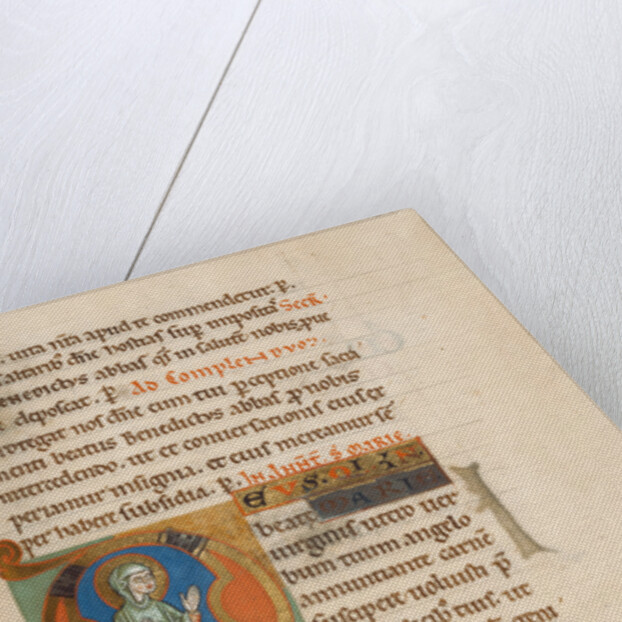 iura n̄ra apud te commendetur. p̄.
altarib; dn̄e hostias sup̄ impositas Secr̄.
ENEDICTVS abbas qs̄ in salutē nobis p̄ue
deposcat. p̄. Ad Complendum.
tegat nos dn̄e cum tui p̄ceptione sacra
menti beatus Benedictus abbas p̄ nobis
intercedendo. ut et conuersationis eius ex
periamur insignia. et eius mereamur sē
per habere subsidia. p̄. IN ANN̄T S MARIE
EVS QI
MARIE
beate
uirginis utero uer
bum tuum angelo
annuntiante carnē
suscipere uoluisti p̄
tuis. ut